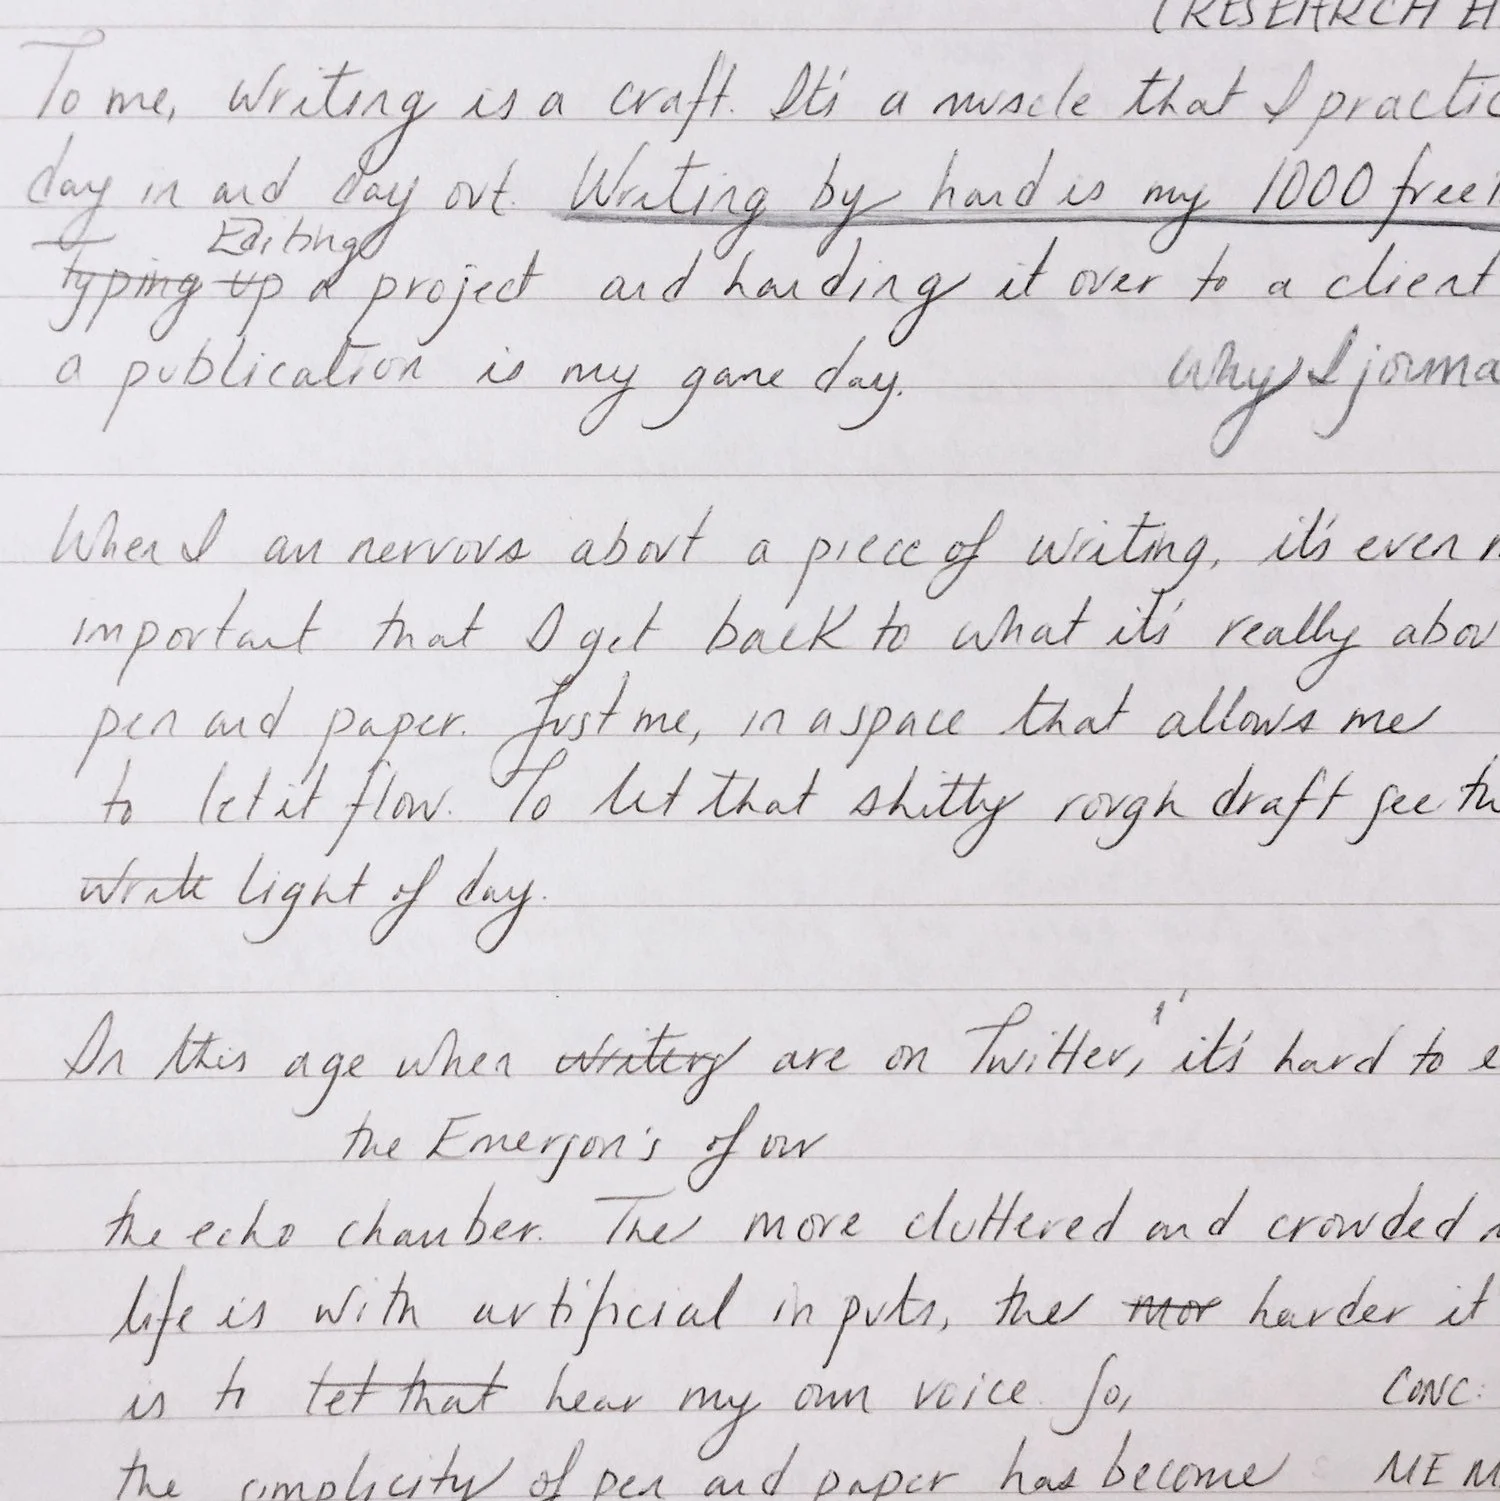 (RESEARCH
To me, writing is a craft. It's a muscle that I practic
day in and day out. Writing by hand is my 1000 free
Editing
typing up a project and handing it over to a client
a publication is my game day. Why I journa
When I am nervous about a piece of writing, it's even
important that I get back to what it's really abou
pen and paper. Just me, in a space that allows me
to let it flow. To let that shitty rough draft see th
write light of day.
In this age when writers are on Twitter, it's hard to e
the Emerson's of our
the echo chamber. The more cluttered and crowded
life is with artificial inputs, the mor harder it
is to let that hear my own voice. So, CONC:
the simplicity of pen and paper has become ME M